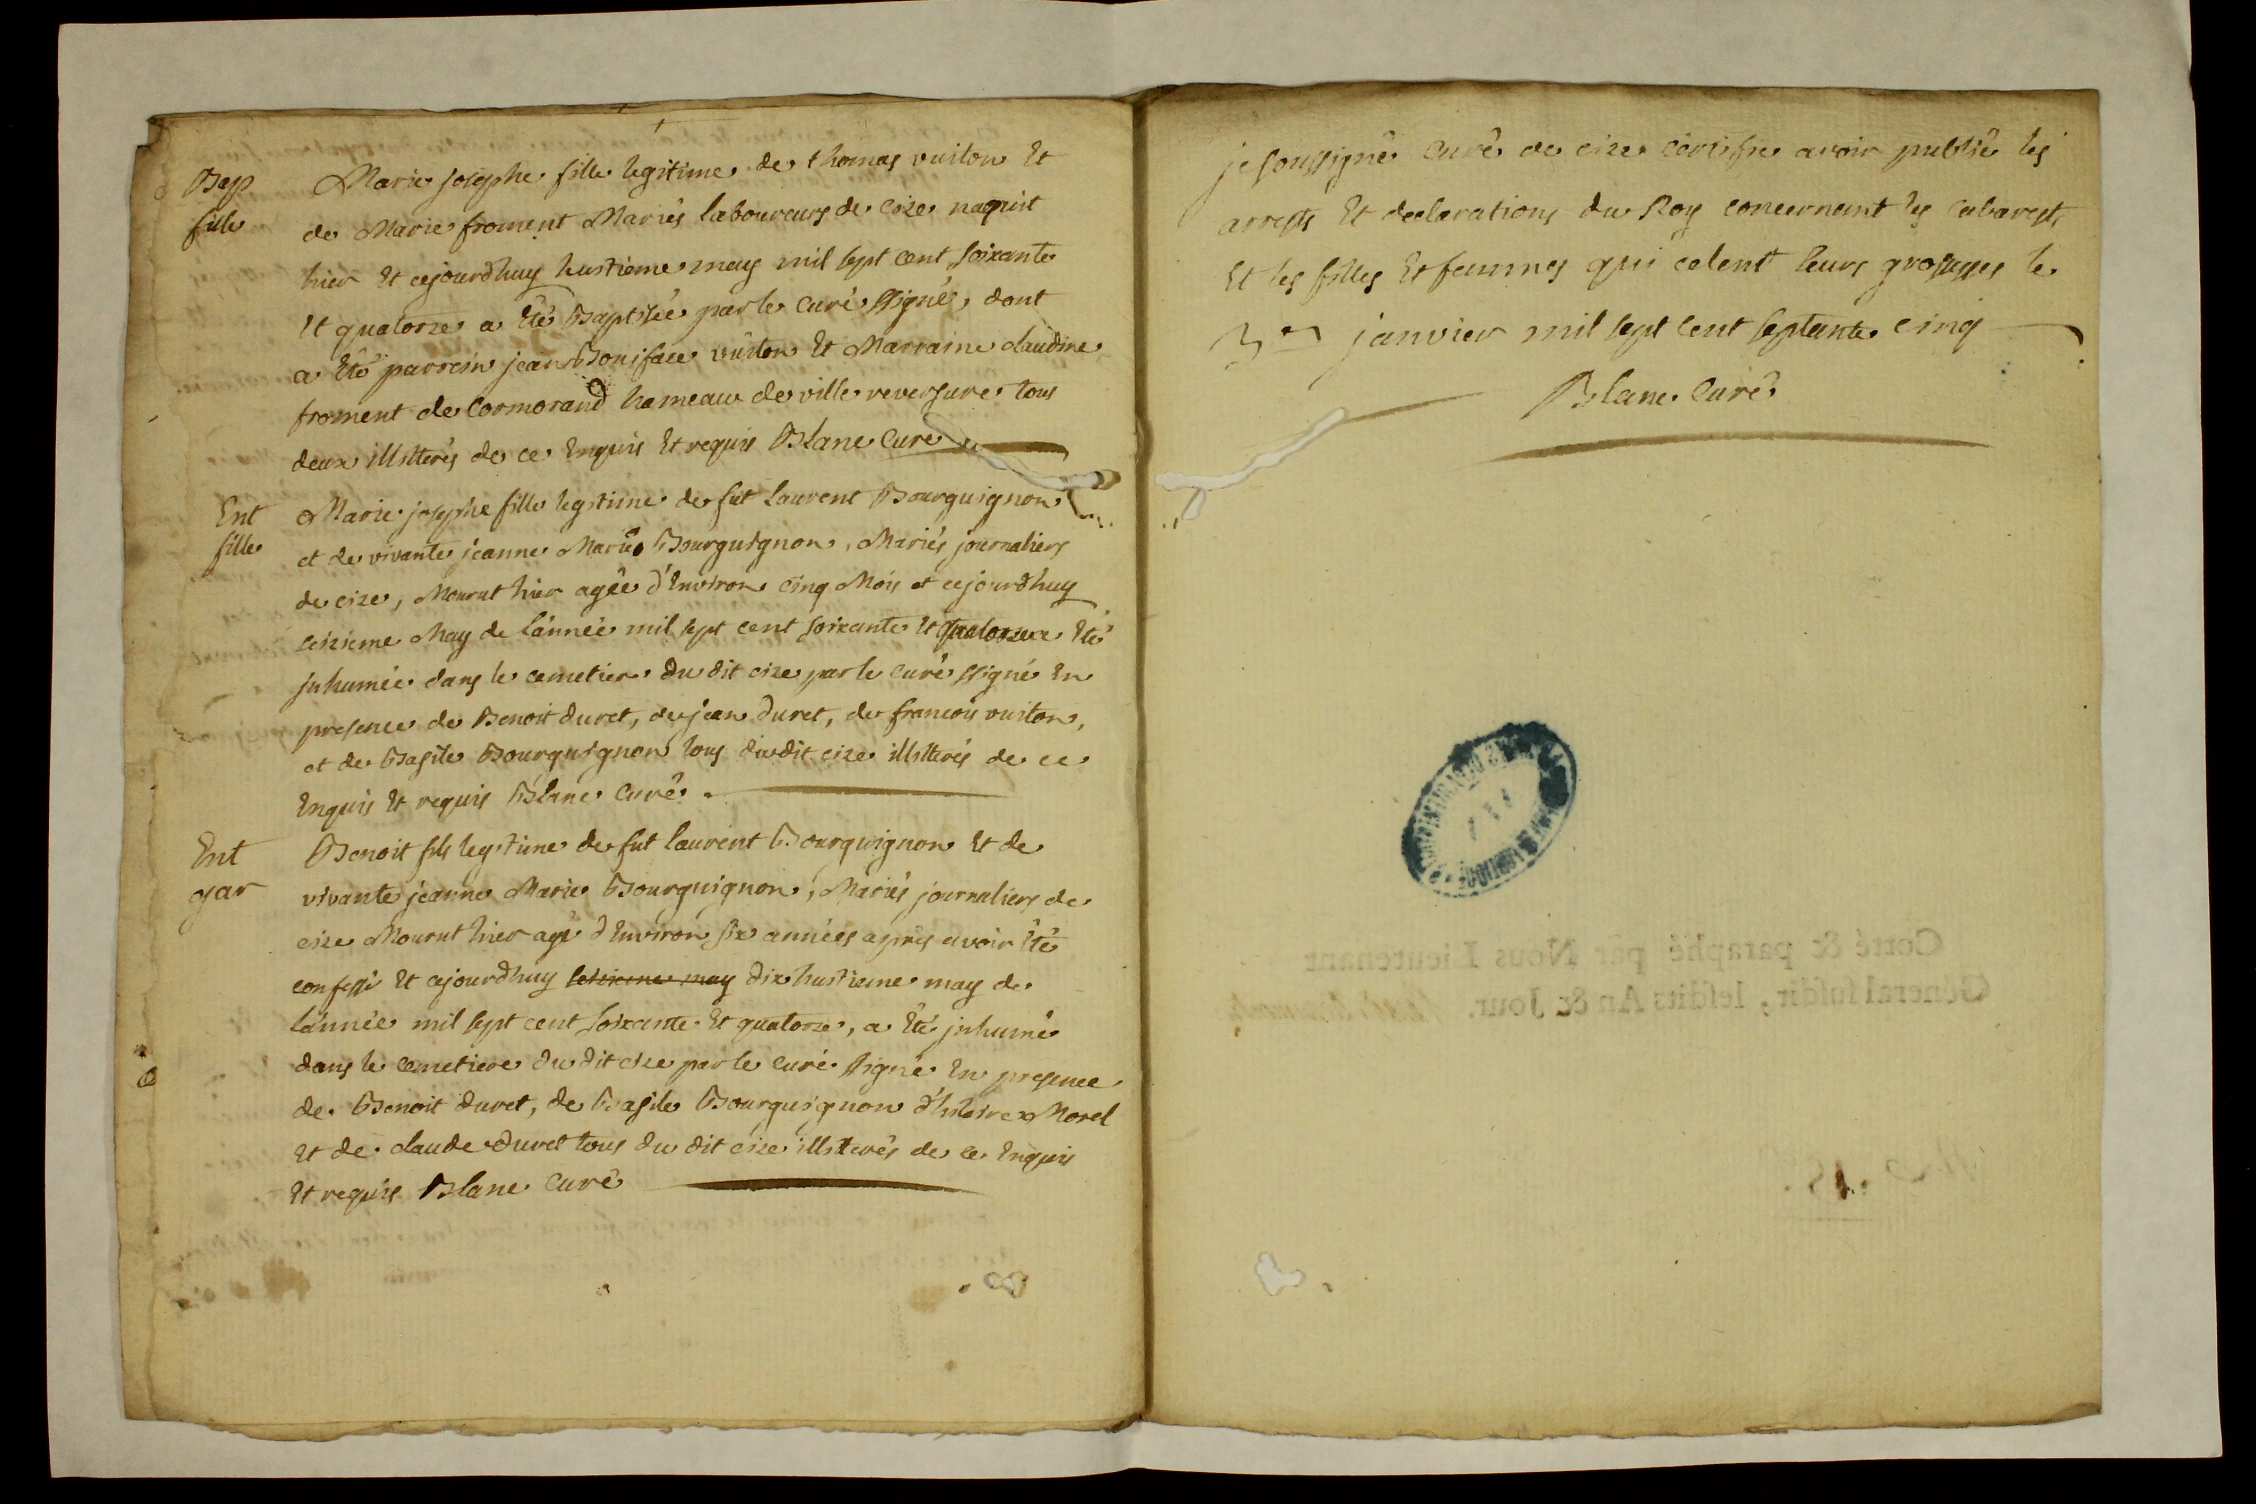 Bap
fille
Marie josephe fille legitime de thomas vuiton Et
de Marie froment Mariés laboureurs de cize naquit
hier Et cejourdhuy huitieme may mil sept cent soixante
Et quatorze a Eté Baptisée par le curé ssigné, dont
a Eté parrein jean Boniface vuiton Et Marraine claudine
froment de Cormorand hameau de ville reversure tous
deux illitterés de ce Enquis Et requis Blanc Curé
Ent
fille
Marie josephe fille legitime de fut laurent Bourguignon
et de vivante jeanne Marie Bourguignon, Mariés journaliers
de cize, Mourut hier agée d'Environ cinq Mois et cejourdhuy
seizieme May de l'année mil sept cent soixante Et quatorze a Eté
jnhumée dans le cemetiere du dit cize par le curé ssigné En
presence de Benoit duret, de jean duret, de francois vuiton,
et de Basile Bourguignon tous dudit cize illitterés de ce
Enquis Et requis Blanc Curé.
Ent
gar
Benoit fils legitime de fut laurent Bourguignon Et de
vivante jeanne Marie Bourguignon, Mariés journaliers de
cize Mourut hier agé d'Environ six années apris avoir Eté
confessé Et cejourdhuy seizieme may dix huitieme may de
l'année mil sept cent soixante Et quatorze, a Eté jnhumé
dans le cemetiere du dit cize par le curé ssigné En presence
de Benoit duret, de Basile Bourguignon d'hilaire Morel
Et de claude duret tous du dit cize illitterés de ce Enquis
Et requis Blanc Curé
je soussigné curé de cize certifie avoir publié les
arrests Et declarations du Roy concernant les cabarests
Et les filles Et femmes qui celent leurs grosesses le
janvier mil sept cent septante cinq
Blanc Curé
Cotté & paraphé par Nous Lieutenant
Général susdit, lesdits An & Jour.